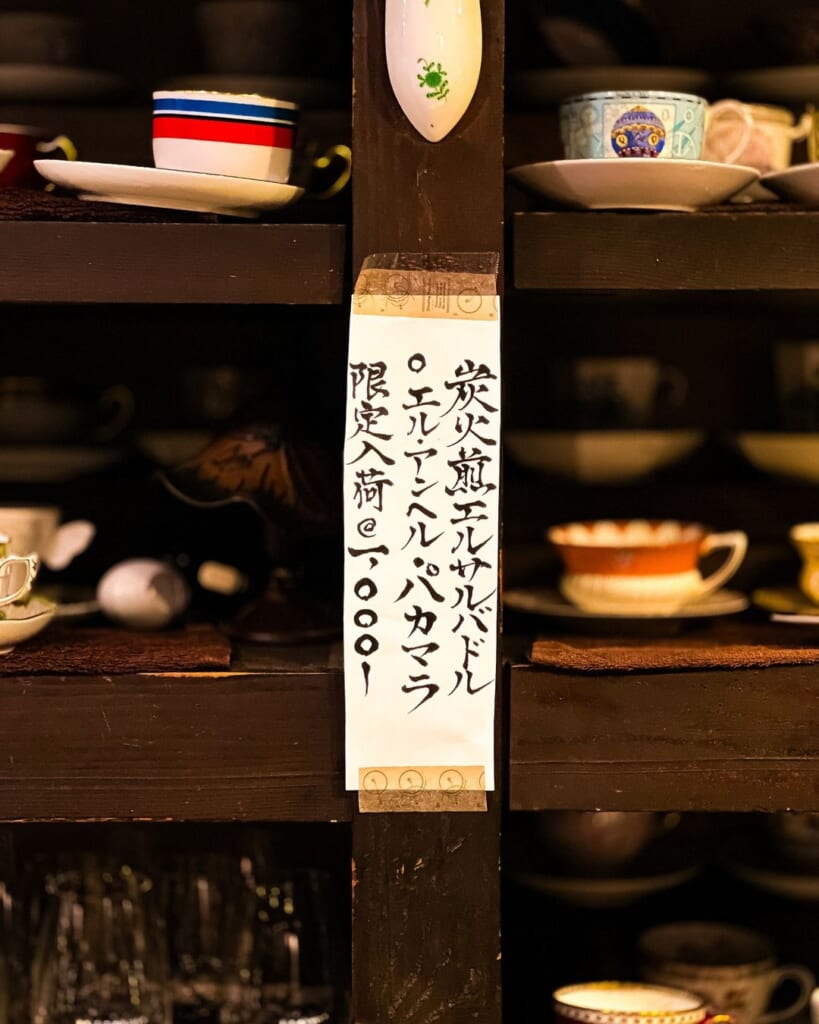 炭火煎エルサルバドル
○エル・アンヘル・パカマラ
限定入荷@一、〇〇〇ー